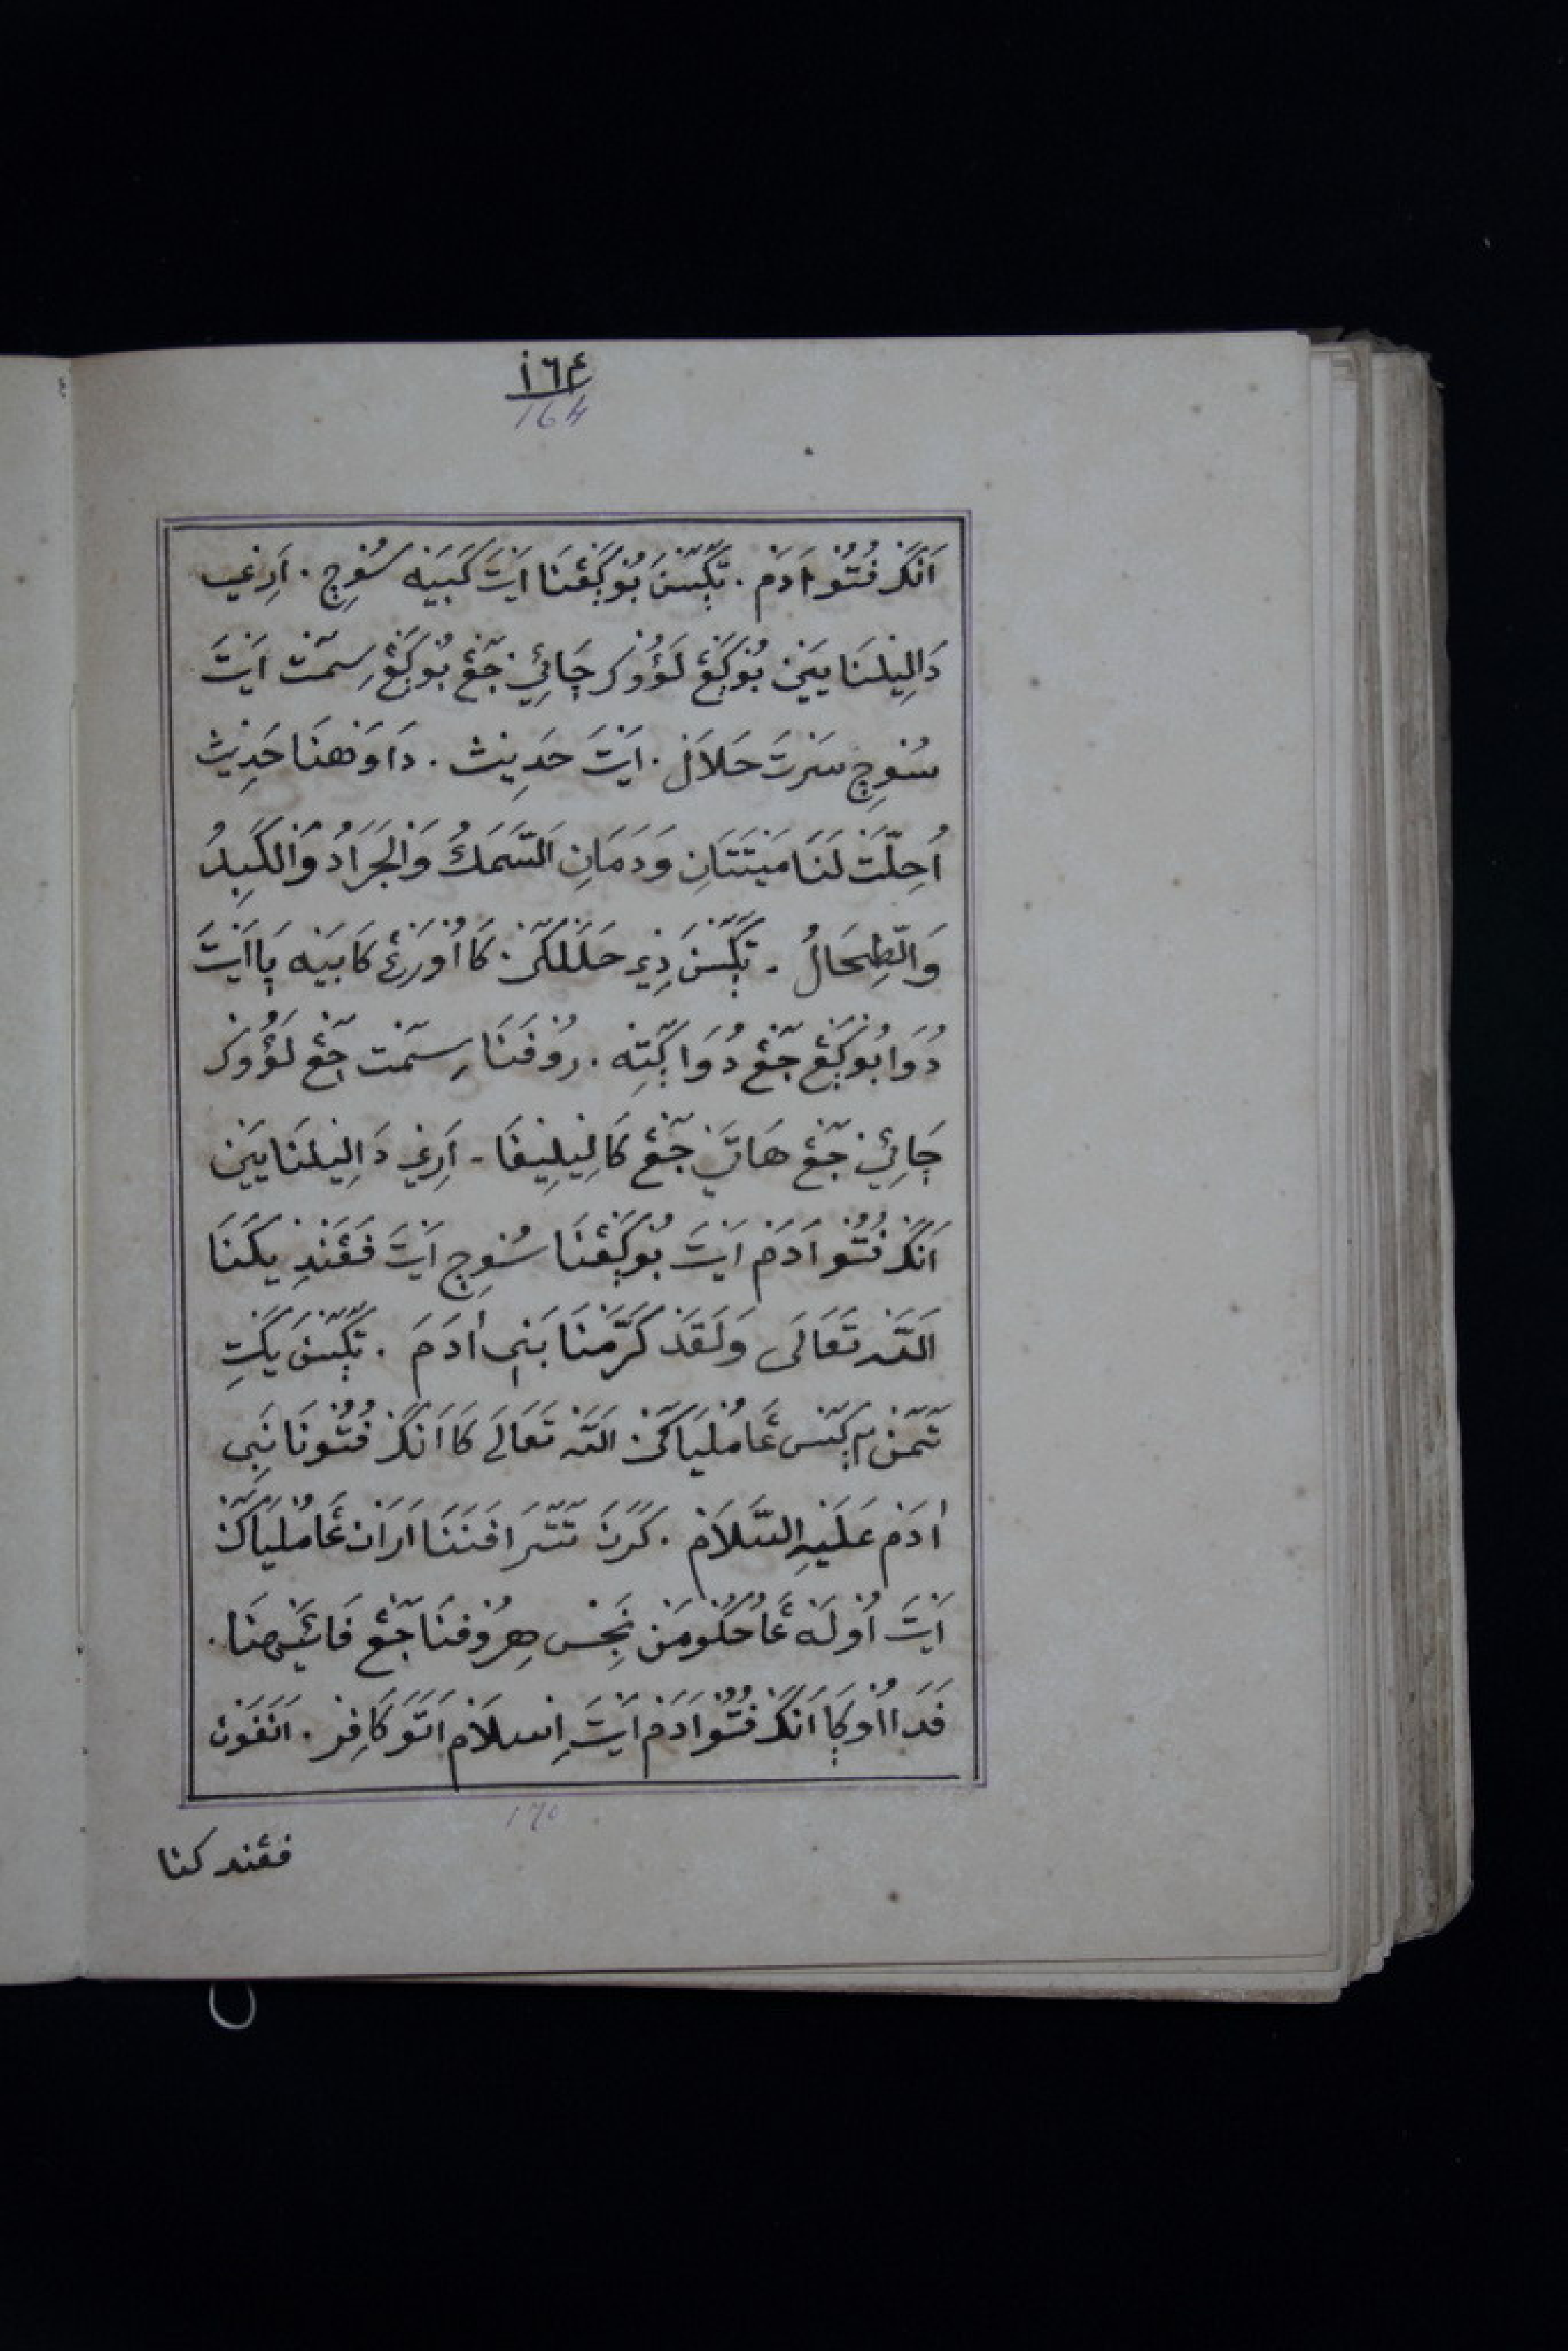 ١٦٤
164
اَنْكَرْ فُتُوْ اٰدَمْ . تَڮَّسْنَ بُوْڮَڠْنَا اَيْتَ كَبَيْه سُوْچِ . اَرْغِي
دَالِيْلْنَا يَيْنْ بُوْڮَڠْ لَؤُوْكْ چَائِيْ جّڠْ بُوْڮَڠْ سِمّتْ اَيْتَ
سُوْچِ سَرْتَ حَلَالْ . اَيْتَ حَدِيْث . دَاوَوْهْنَا حَدِيْث
اُحِلَّتْ لَنَا مَيْتَتَانِ وَدَمَانِ اَلسَّمَكُ وَالْجَرَادُ وَالْكَبِدُ
وَالطِّحَالُ . تَڮَّسْنَ دِيْ حَلَلْكَنْ كَا اُوْرَڠْ كَابَيْه ڽَا اَيْتَ
دُوَا بُوْڮَڠْ جّڠْ دُوَا ڮّتِهْ . رُوْفَنَا سِمّتْ جّڠْ لَؤُوْكْ
چَائِيْ جّڠْ هَاتَيْ جّڠْ كَالِيْلِيْفَا . اَرْغِي دَالِيْلْنَا يَيْنْ
اَنْكَرْ فُتُوْ اٰدَمْ اَيْتَ بُوْڮَڠْنَا سُوْچِ اَيْتَ فَڠَنْدِيْكَنَا
اَللّٰهْ تَعَالَى وَلَقَدْ كَرَّمْنَا بَنِي اٰدَمَ . تَڮَّسْنَ يَكْتِ
تّمّنْ ٢ ڮّسْ ڠَامُلْيَاكَنْ اَللّٰهْ تَعَالَى كَا اَنْكَرْ فُتُوْنَا نَبِي
اٰدَمْ عَلَيْهِ السَّلَامْ . كَرَنَ تَتّرَافَنَنَا اَرَانْ ڠَامُلْيَاكَنْ
اَيْتَ اُوْلَهْ ڠَاحُكُوْمَنْ نَجِسْ هِرُوْفْنَا جّڠْ فَائَيْهْنَا .
فَدَا اُوْڮَا اَنْكَرْ فُتُوْ اٰدَمْ اَيْتَ اِسْلَامْ اَتَوَ كَافِرْ . اَنَفَوْنْ
170
فڠندكنا